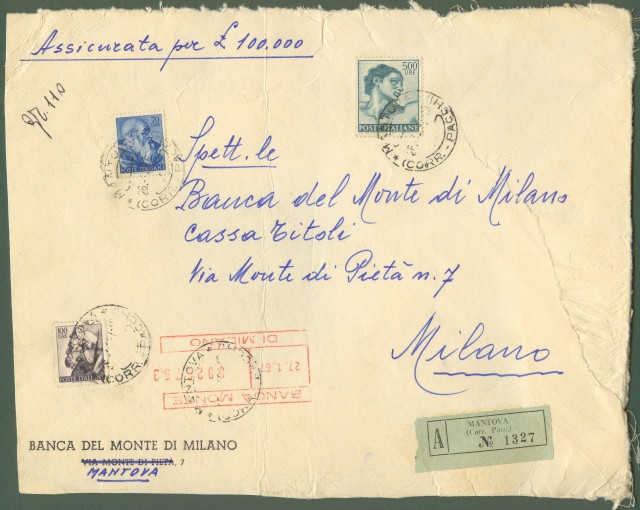 Assicurata per £ 100.000
gr. 110
500
LIRE
POSTE ITALIANE
20
POSTE ITALIANE
Spett.le
Banca del Monte di Milano
Cassa Titoli
Via Monte di Pietà n. 7
Milano
100
LIRE
POSTE ITALIANE
DI MILANO
27.1.67
BANCA MONTE
MANTOVA
(CORR.-PACCHI)
MANTOVA
(Corr. Pacc.)
A
№ 1327
BANCA DEL MONTE DI MILANO
VIA MONTE DI PIETÀ, 7
MANTOVA